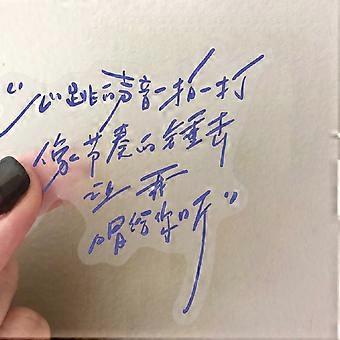 “心跳的声音一拍一打
像节奏的锤击
让我
唱给你听”